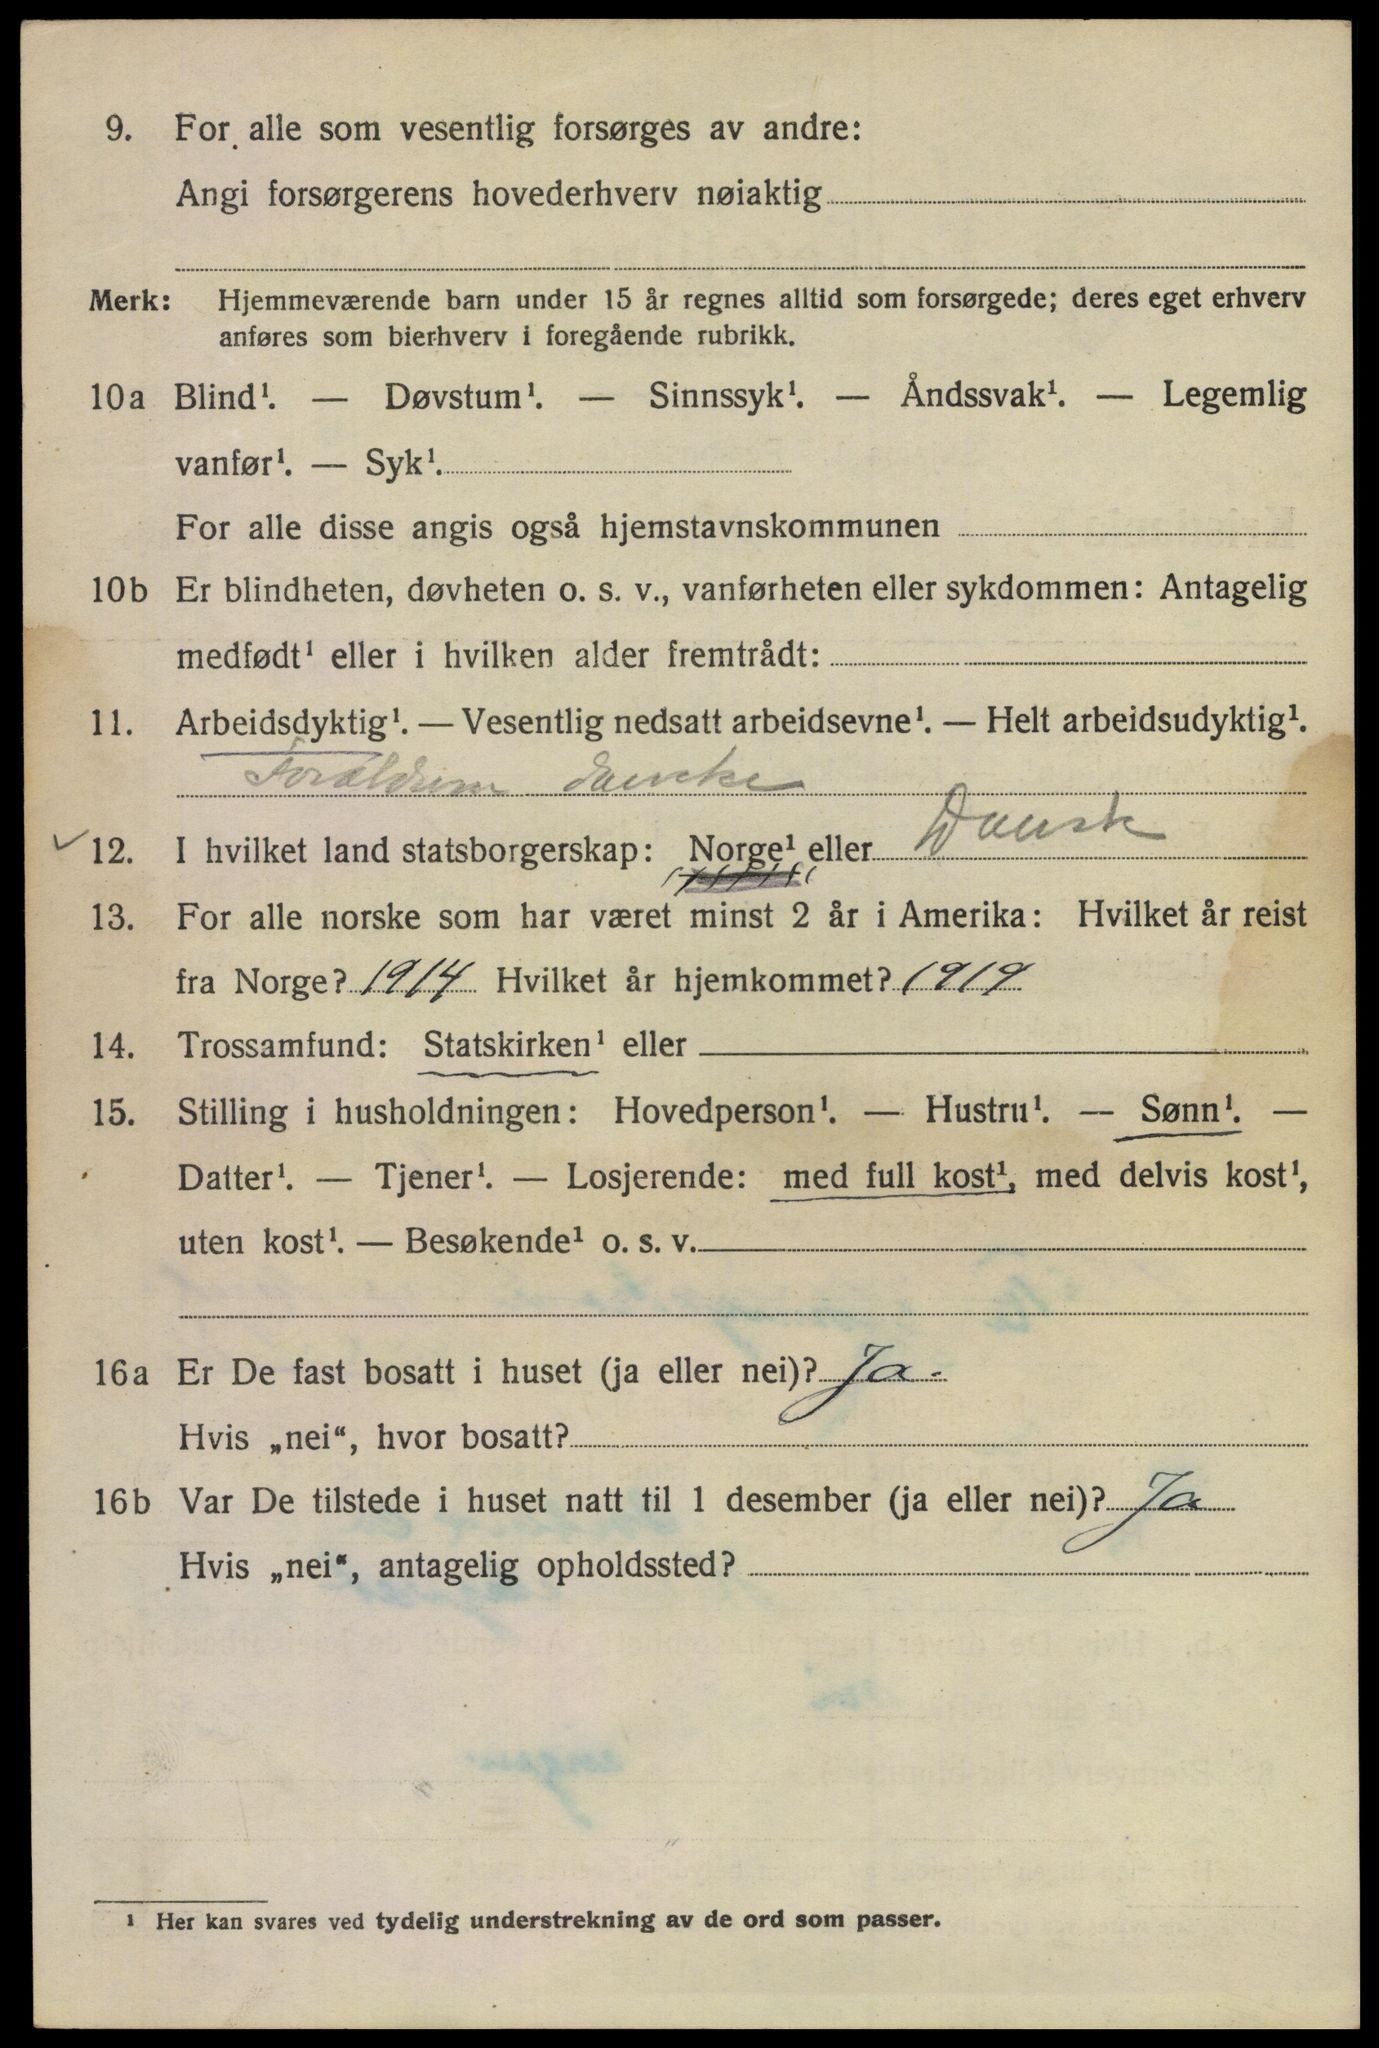 9. For alle som vesentlig forsørges av andre:
Angi forsørgerens hovederhverv nøiaktig
Merk: Hjemmeværende barn under 15 år regnes alltid som forsørgede; deres eget erhverv
anføres som bierhverv i foregående rubrikk.
10a Blind¹. — Døvstum¹. — Sinnssyk¹. — Åndssvak¹. — Legemlig
vanfør¹. — Syk¹.
For alle disse angis også hjemstavnskommunen
10b Er blindheten, døvheten o. s. v., vanførheten eller sykdommen: Antagelig
medfødt¹ eller i hvilken alder fremtrådt:
11. Arbeidsdyktig¹. — Vesentlig nedsatt arbeidsevne¹. — Helt arbeidsudyktig¹.
Forældrene danske
12. I hvilket land statsborgerskap: Norge¹ eller Dansk
13. For alle norske som har været minst 2 år i Amerika: Hvilket år reist
fra Norge? 1914 Hvilket år hjemkommet? 1919
14. Trossamfund: Statskirken¹ eller
15. Stilling i husholdningen: Hovedperson¹. — Hustru¹. — Sønn¹. —
Datter¹. — Tjener¹. — Losjerende: med full kost¹, med delvis kost¹,
uten kost¹. — Besøkende¹ o. s. v.
16a Er De fast bosatt i huset (ja eller nei)? Ja.
Hvis „nei“, hvor bosatt?
16b Var De tilstede i huset natt til 1 desember (ja eller nei)? Ja
Hvis „nei“, antagelig opholdssted?
¹ Her kan svares ved tydelig understrekning av de ord som passer.